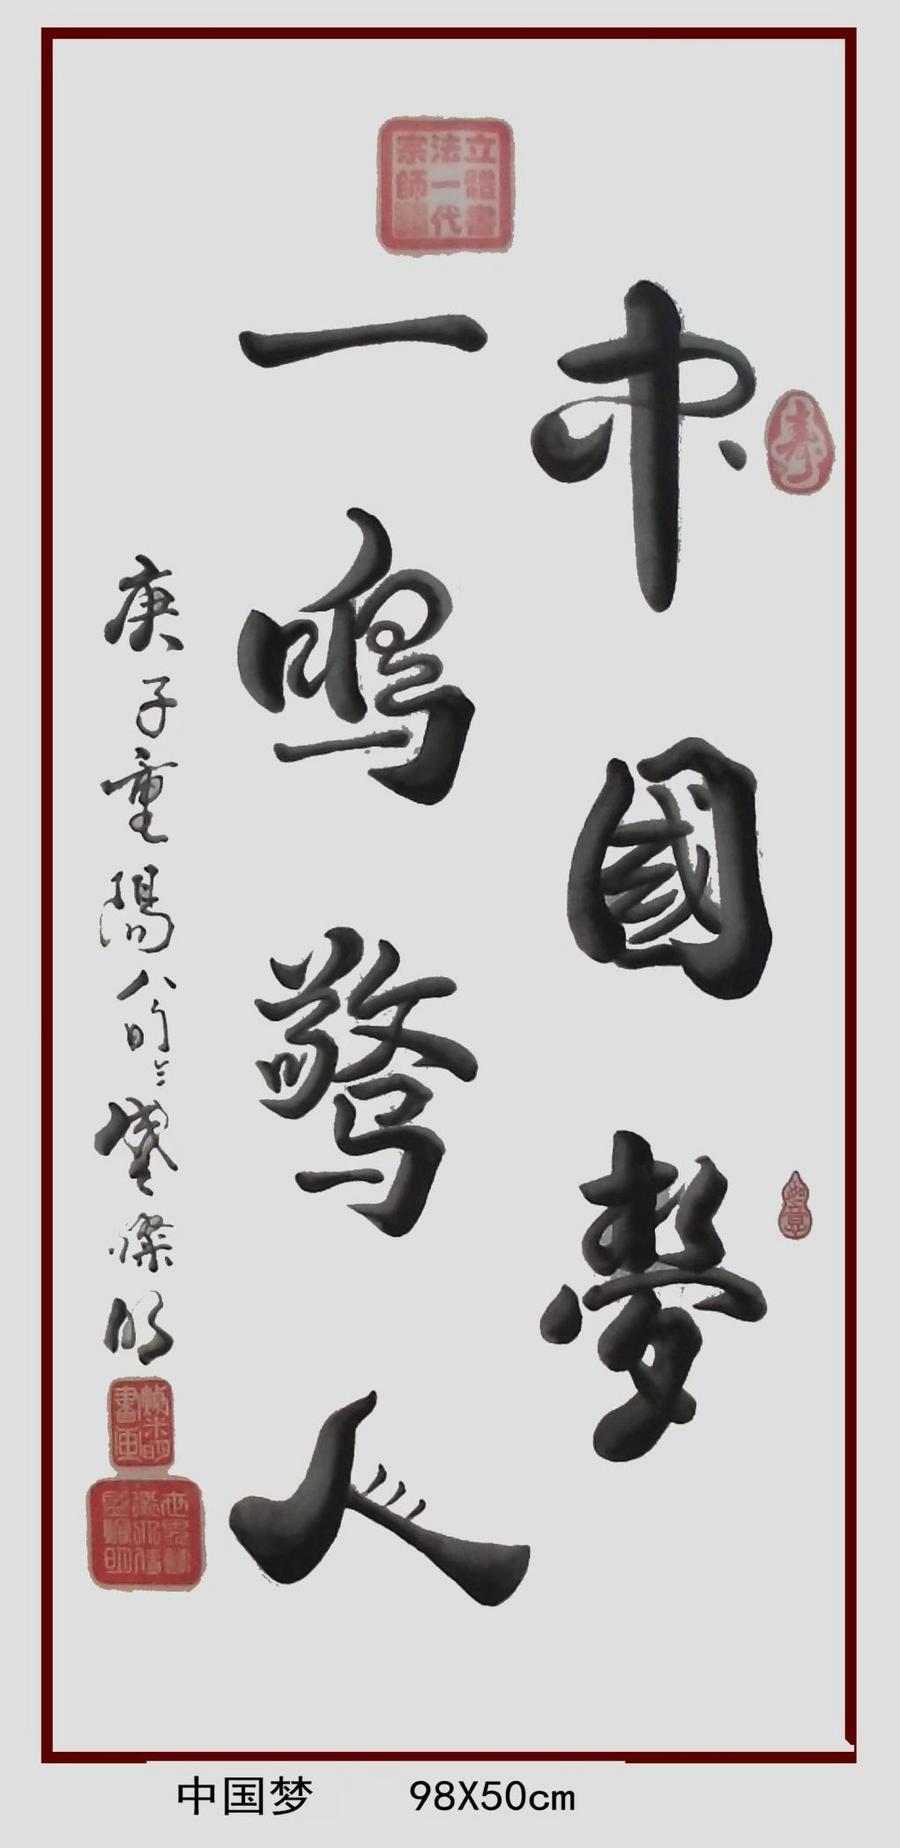 立體書
法一代
宗師
寿
中國夢
一鳴驚人
庚子重陽
燦明
书画
中国梦 98X50cm